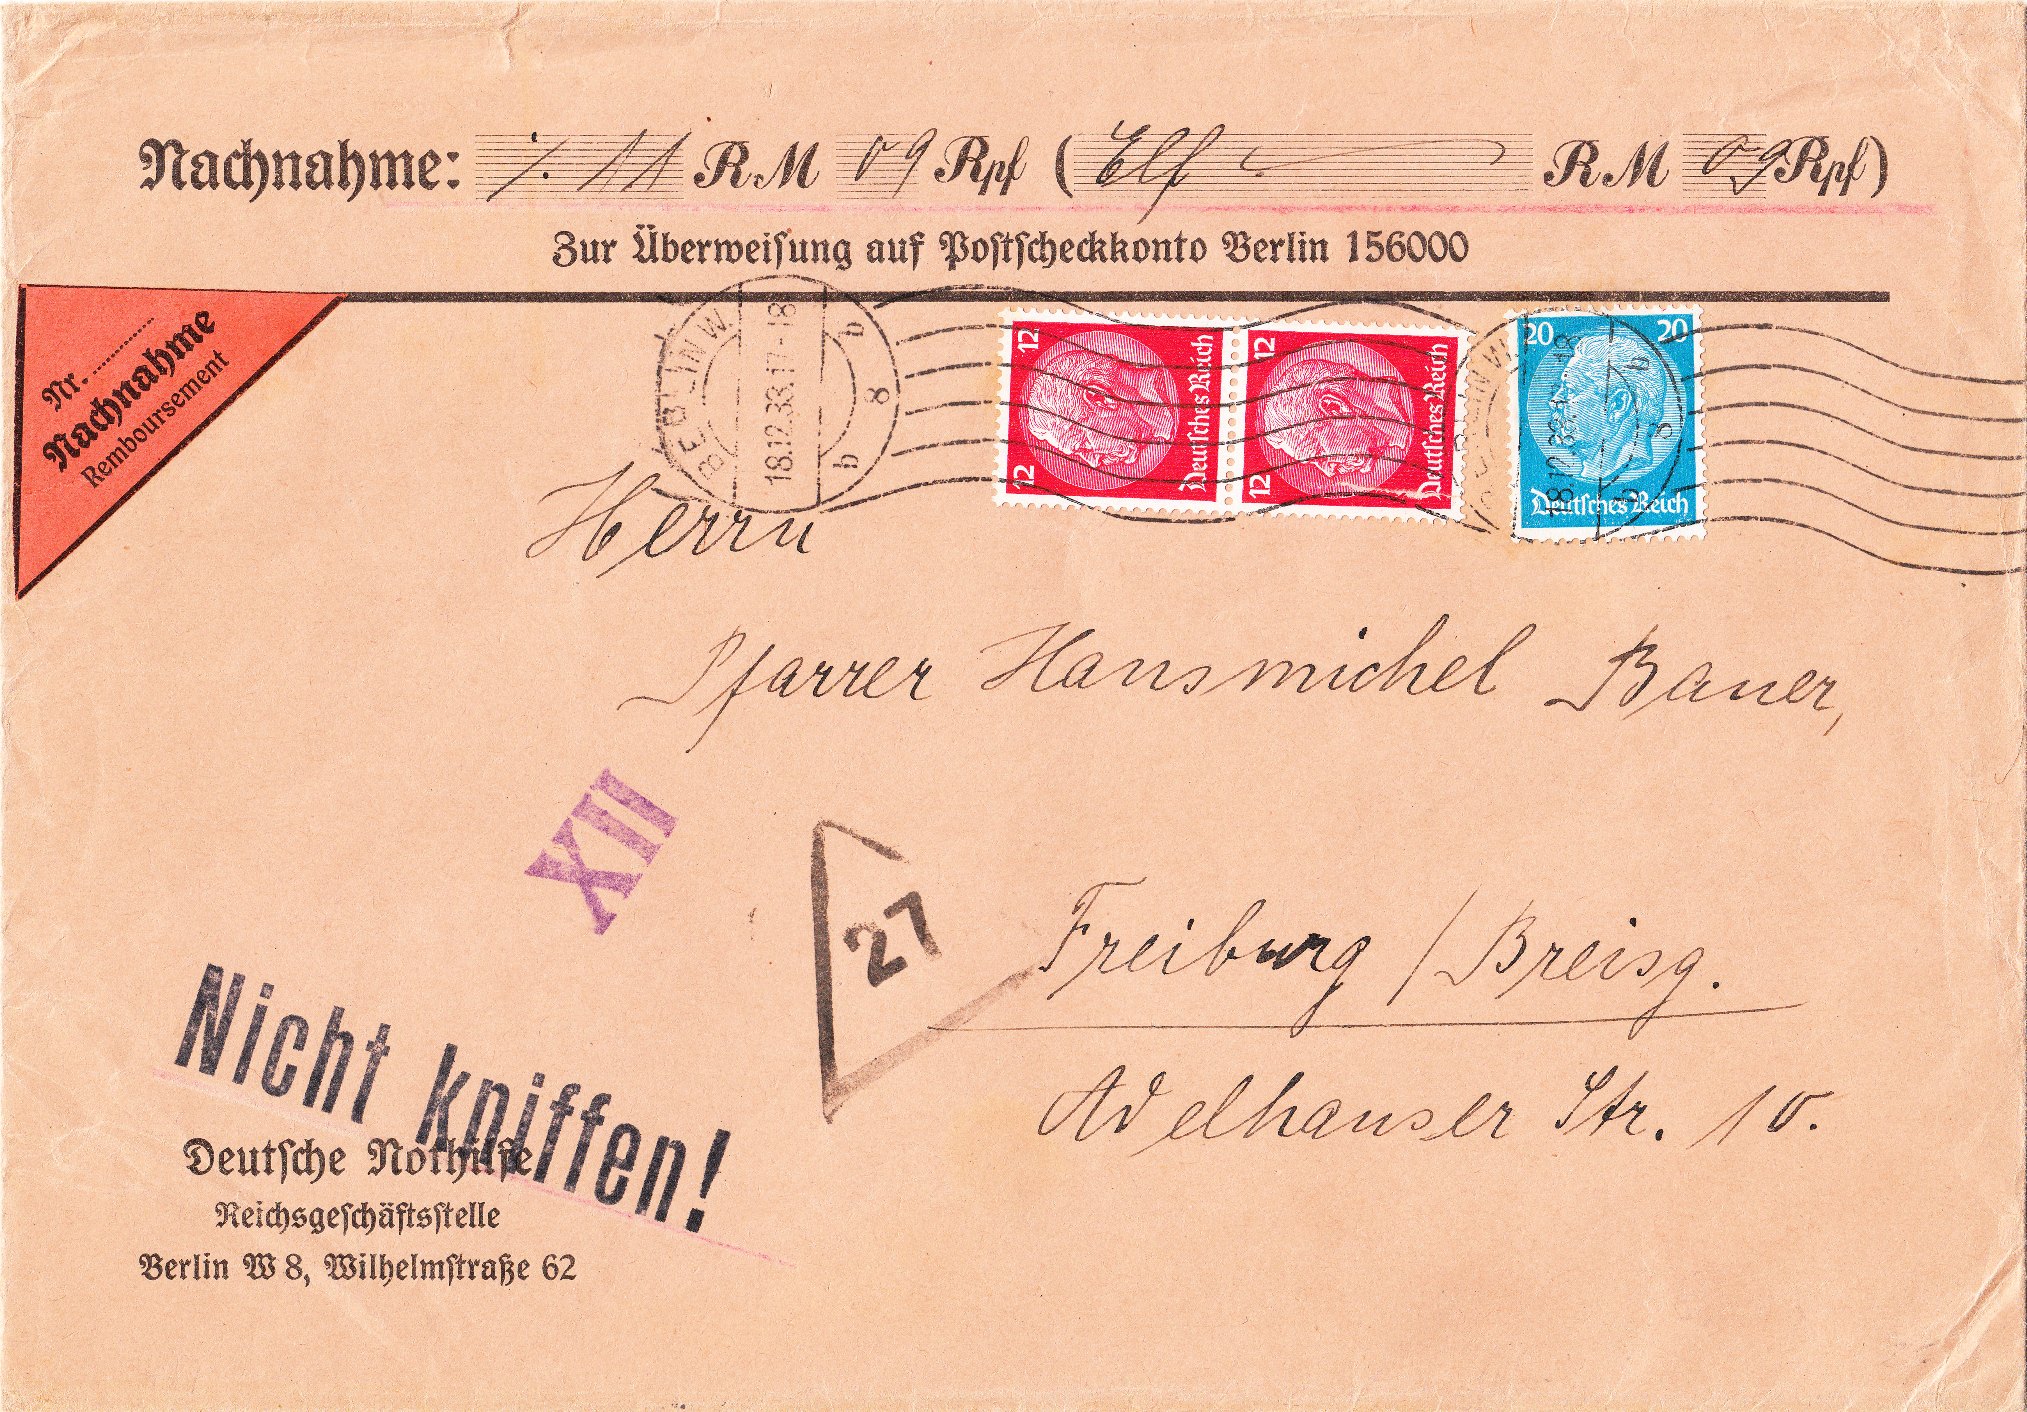 Nachnahme: ./. 11 RM 09 Rpf ( Elf RM 09 Rpf)
Zur Überweiſung auf Poſtſcheckkonto Berlin 156000
Nr. ........
Nachnahme
Remboursement
BERLIN W
18.12.33.17-18
b 8 b
12 12 Deutſches Reich
12 12 Deutſches Reich
20 20
Deutſches Reich
BERLIN W
18.12.33.17-18
b 8 b
Herrn
Pfarrer Hansmichel Bauer,
XII
27
Freiburg / Breisg.
Adelhauser Str. 10.
Nicht kniffen!
Deutſche Nothilfe
Reichsgeſchäftsſtelle
Berlin W 8, Wilhelmſtraße 62